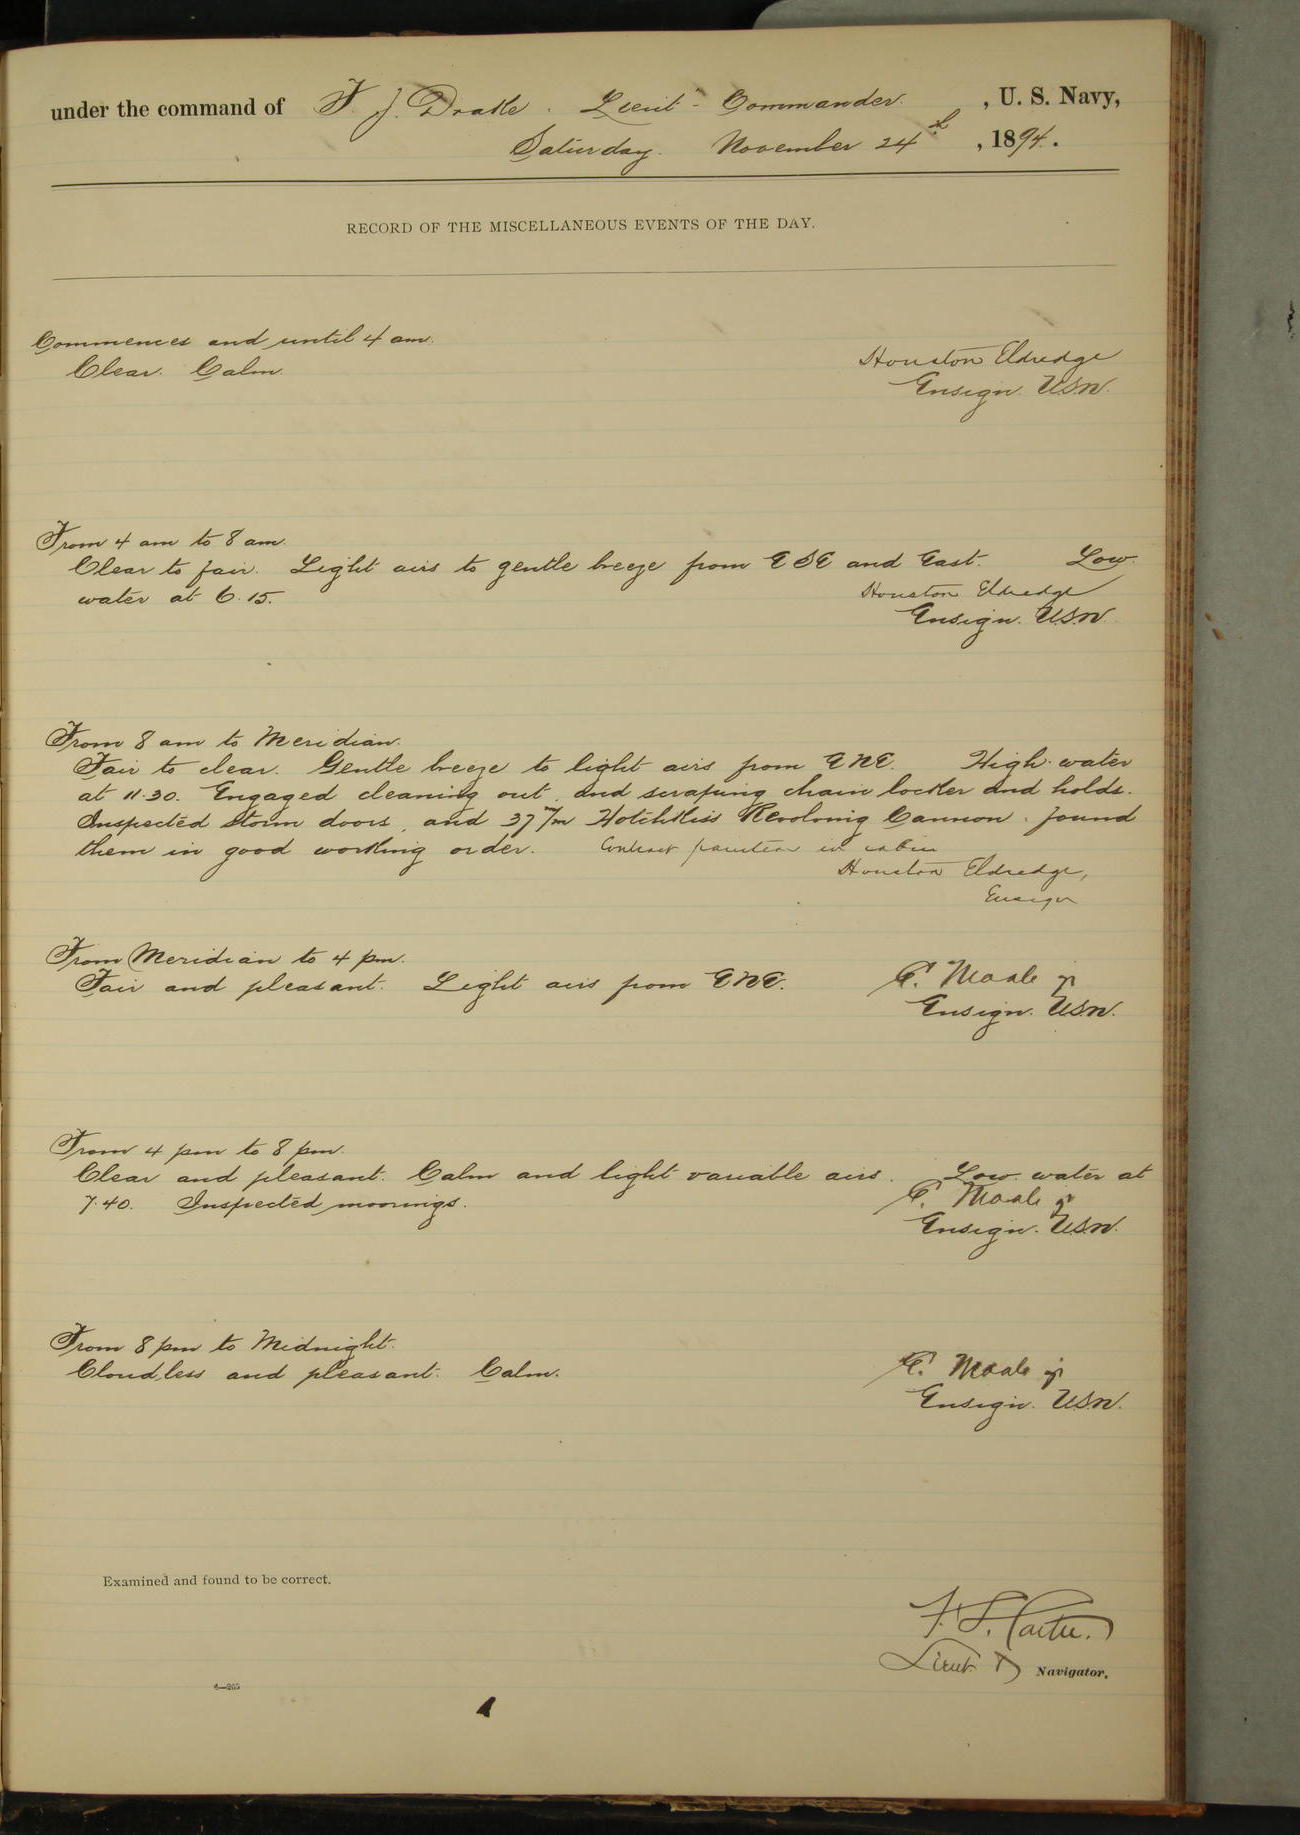 under the command of F. J. Drake. Lieut-Commander. , U. S. Navy,
Saturday. November 24th , 1894.
RECORD OF THE MISCELLANEOUS EVENTS OF THE DAY.
Commences and until 4 am.
Clear. Calm.
Houston Eldredge
Ensign. U.S.N.
From 4 am to 8 am.
Clear to fair. Light airs to gentle breeze from ESE and East. Low
water at 6.15.
Houston Eldredge
Ensign. U.S.N.
From 8 am to Meridian.
Fair to clear. Gentle breeze to light airs from ENE. High water
at 11.30. Engaged cleaning out, and scraping chain locker and holds.
Inspected storm doors, and 37 m/m Hotchkiss Revolving Cannon. found
them in good working order. Contract painters in cabin
Houston Eldredge,
Ensign
From Meridian to 4 pm.
Fair and pleasant. Light airs from ENE.
E. Moale jr
Ensign. U.S.N.
From 4 pm to 8 pm.
Clear and pleasant. Calm and light variable airs. Low water at
7.40. Inspected moorings.
E. Moale jr
Ensign. U.S.N.
From 8 pm to Midnight.
Cloudless and pleasant. Calm.
E. Moale jr
Ensign. U.S.N.
Examined and found to be correct.
F. S. Carter.
Lieut & Navigator.